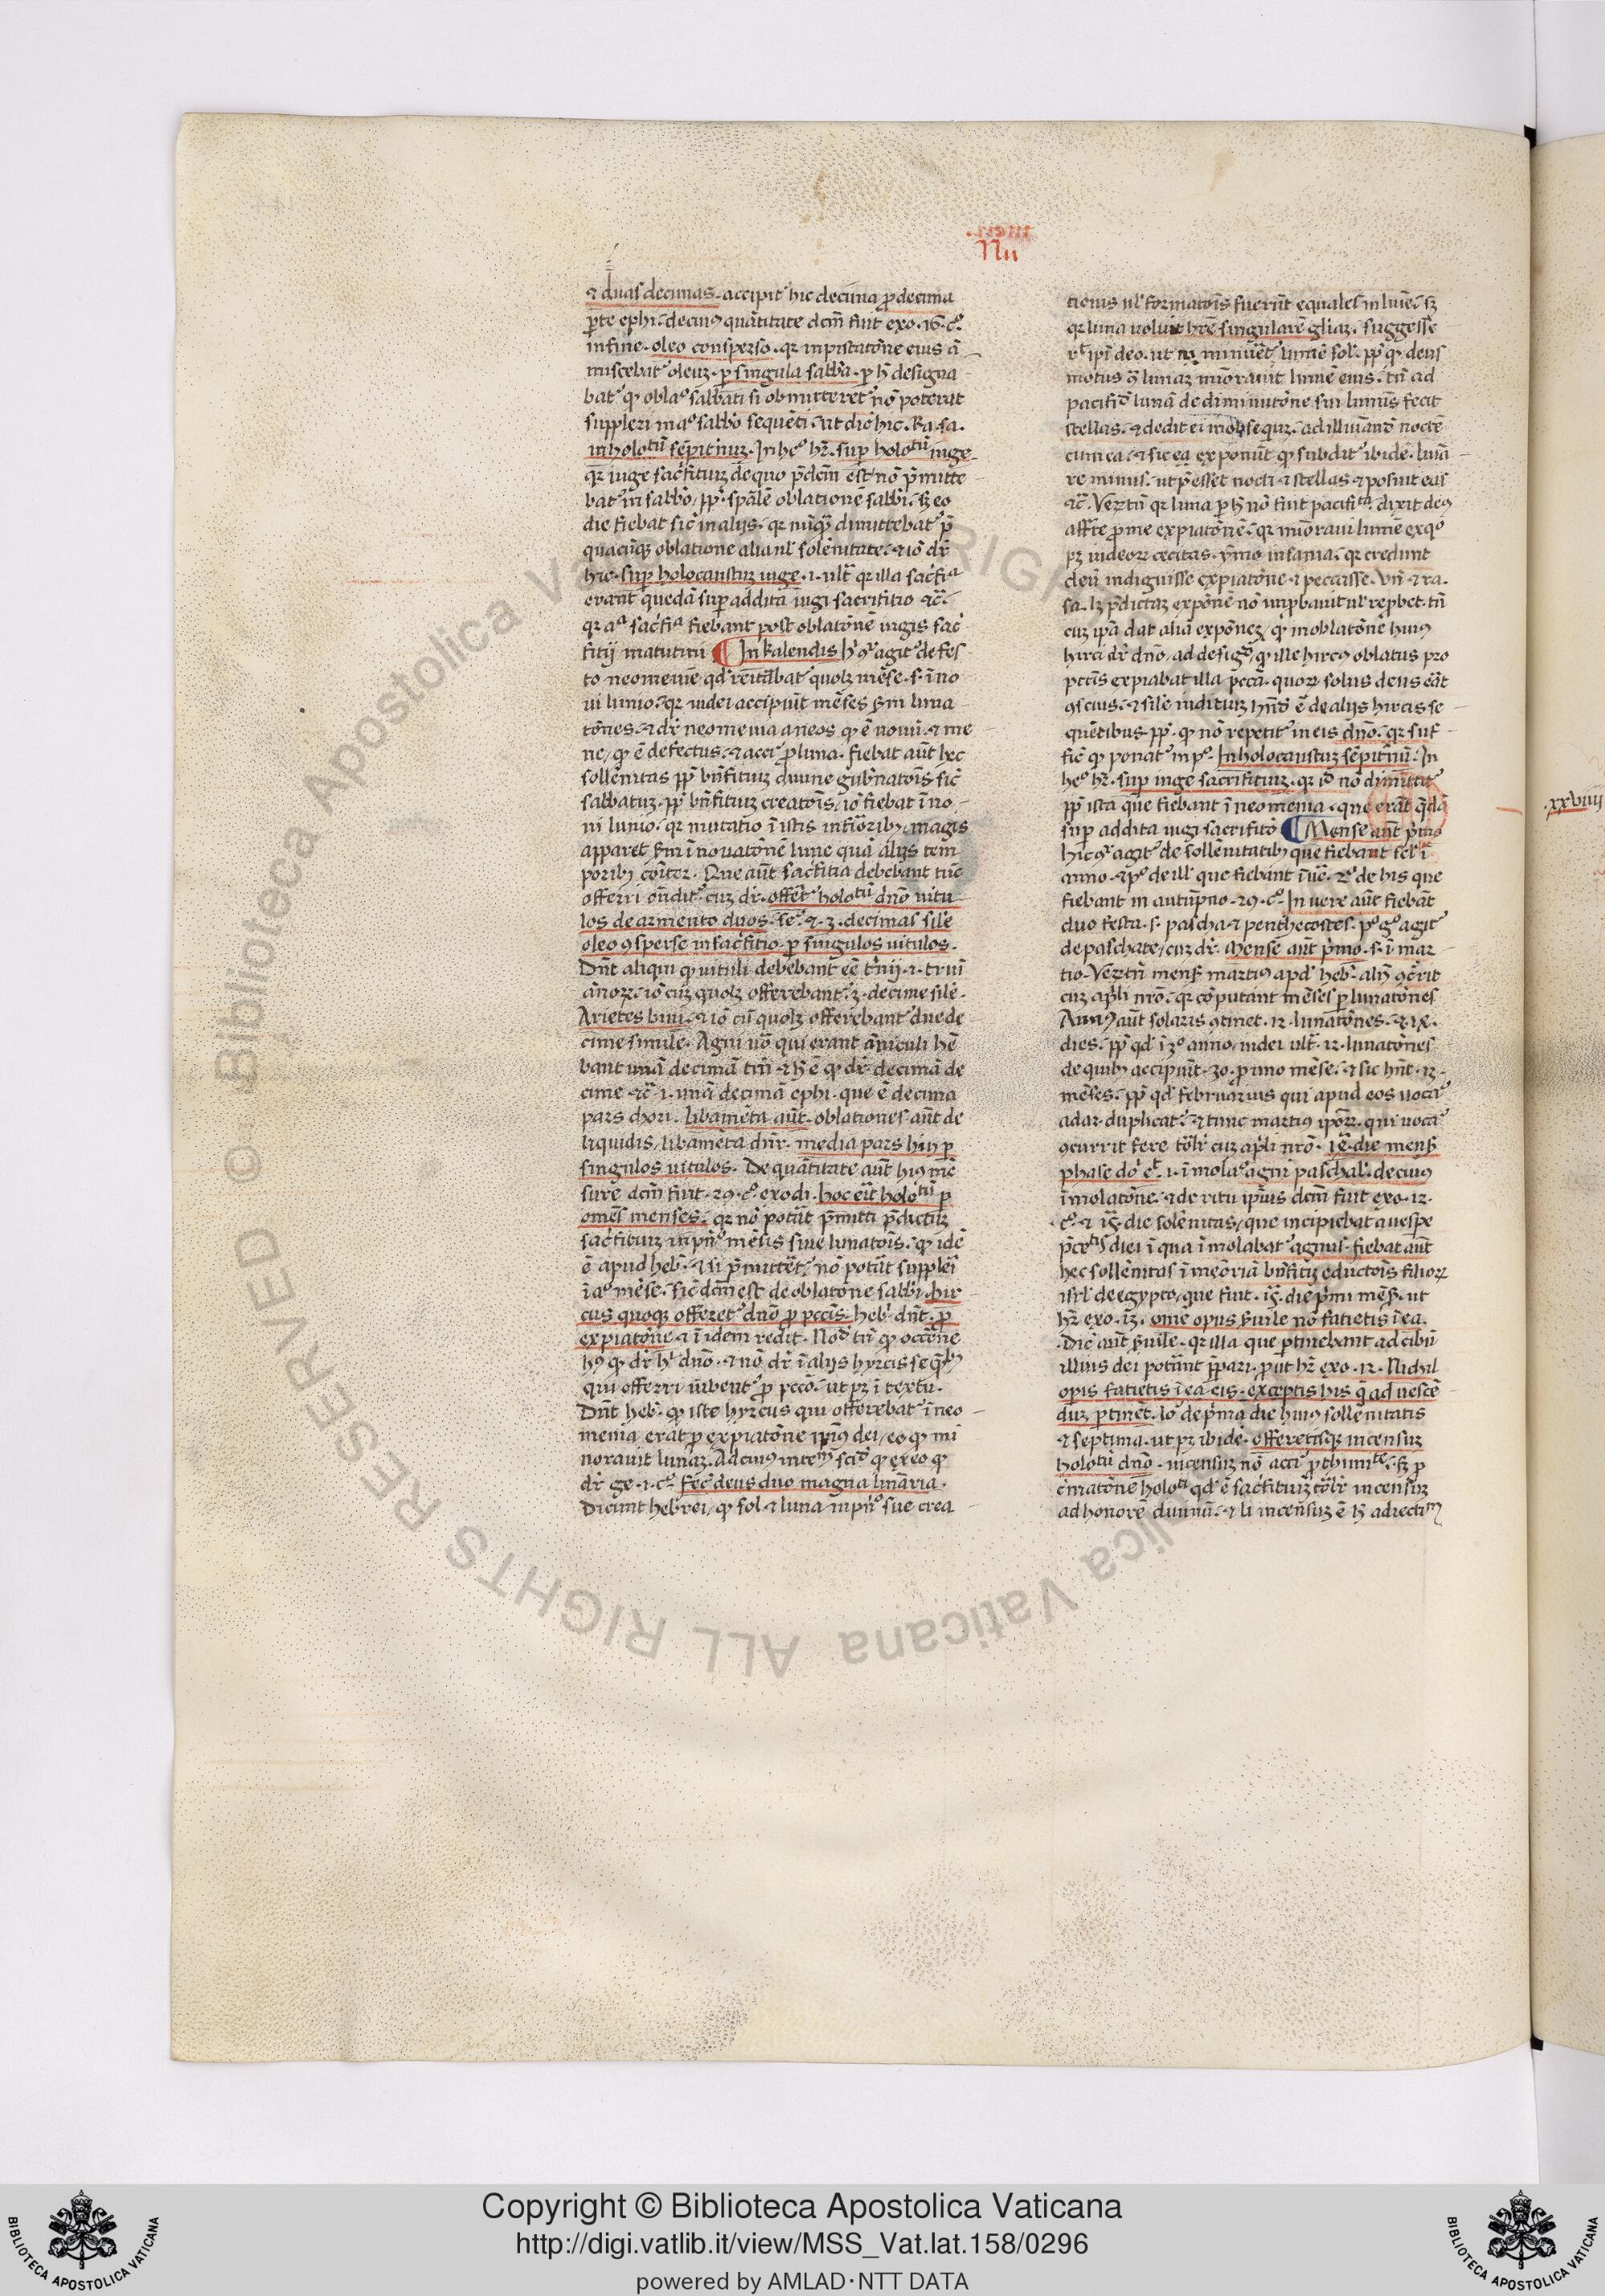 Nu
⁊ duas decimas. accipit᷑ hic decima ꝓ decima
ꝑte ephi. de cuiꝰ quātitate dcm̄ fuit exo. 16. cͦ.
in fine. oleo consperso. qꝛ in pistatōne eius ā
miscebat᷑ oleuꝫ. ꝑ singula sabb̄a. ꝑ h̄ designa
bat᷑ ꝙ oblaͦ sabbati si obmitteret᷑ nō poterat
suppleri in aͦ sabb̄o sequēti. ut dic̄ hic. Ra. sa.
in holotū sēpit̄nuꝫ. In heͦ hꝫ. suꝑ holotū iuge
qꝛ iuge sac̄fitiuꝫ de quo p̄dcm̄ est nō p̄mitte
bat᷑ in sabb̄o, ꝓp̄ spālē oblationē sabb̄i. sꝫ eo
die fiebat sic̄ in alijs. qꝛ nūqͣ dimittebat᷑ ꝓ
quacūqꝫ oblatione alia ul̓ solēnitate. ⁊ iō dr̄
hic. suꝑ holocaustuꝫ iuge. i. ult̄ qꝛ illa sac̄fiᵃ
erant quedā suꝑ addita iugi sacrifitio ⁊c̄.
qꝛ aᵃ sac̄fiᵃ fiebant post oblatōnē iugis sac̄
fitij matutini ¶ In kalendis hͥ ꝯͬ agit᷑ de fes
to neomenie, qd̓ reitābat᷑ quolꝫ mēse. s. ī no
ui lunio. qꝛ iudei accipiūt mēses ẜm luna
tōnes. ⁊ dr̄ neomenia a neos ꝙ ē nouū. ⁊ me
ne, ꝙ ē defectus. ⁊ acciͬ ꝓ luna. fiebat aūt hec
sollēnitas ꝓp̄ bn̄fitiuꝫ diuine gub̄natōis sic̄
sabbatuꝫ. ꝓp̄ bn̄fitiuꝫ creatōis, iō fiebat ī no
ui lunio. qꝛ mutatio ī istis infiōribꝫ magis
apparet ẜm īnouatōne lune quā alijs tem
poribꝫ cōiter. Que aūt sac̄fitia debebant tūc
offerri ondit᷑. cuꝫ dr̄. offēt᷑ holotū dn̄o uitu
los de armento duos. seͬ. ⁊. 3. decimas sile
oleo ꝯsperse in sac̄fitio. ꝑ singulos uitulos.
Dn̄t aliqui ꝙ uituli debebant eē t̄nij. i. triū
ānoꝝ. iō cuꝫ quolꝫ offerebant᷑. 3. decime sile.
Arietes bini. ⁊ iō cū quolꝫ offerebant᷑ due de
cime simile. Agni uō qui erant āniculi hē
bant unā decimā tm̄. ⁊ h̄ ē ꝙ dr̄ decimā de
cime ⁊c̄. i. unā decimā ephi. que ē decima
pars chori. libamēta aūt. oblationes aūt de
liquidis, libamēta dn̄r. media pars hin ꝑ
singulos uitulos. De quātitate aūt hiꝰ mē
sure dcm̄ fuit. 29. cͦ. exodi. hoc eīt holotū ꝑ
omēs menses. qꝛ nō potāt p̄mitti p̄dictuꝫ
sac̄fitiuꝫ in pn̄ͦ mēsis siue lunatōis. ꝙ idē
ē apud heb̄. ⁊ si p̄mittēt᷑, nō potāt suppleī
ī aͦ mēse. sic̄ dcm̄ est de oblatōne sabb̄i. hir
cus quoqꝫ offeret᷑ dn̄o ꝓ pcc̄is. heb̄ dn̄t. ꝓ
expiatōne ⁊ ī idem redit. Noͩ tn̄ ꝙ occōne
hꝰ ꝙ dr̄ hͥ dn̄o. ⁊ nō dr̄ ī alijs hyrcis seq̄ībꝫ
qui offerri iubent᷑ ꝓ pcc̄o. ut pꝫ ī textu.
Dn̄t heb̄. ꝙ iste hyrcus qui offerebat᷑ ī neo
menia, erat ꝓ expiatōne ipiꝰ dei, eo ꝙ mi
norauit lunaꝫ. Ad cuiꝰ intēm̄ sciͩ ꝙ ex eo ꝙ
dr̄ ge. i. cͦ. fec̄ deus duo magna lināria.
Dicunt hebrei, ꝙ sol ⁊ luna in pn̄ͦ sue crea
tionis ul̓ formatōis fuerūt equales in luīe. sꝫ
qꝛ luna uoluit hr̄e singularē gliaꝫ. suggesse
rͭ ipi deo. ut minuēt᷑ lumē sol̓. ꝓp̄ ꝙ deus
motus ꝯͣ lunaꝫ miōrauit lumē eius. tn̄ ad
pacifiͩ lunā de diminutōne sui luminis fecit
stellas. ⁊ dedit ei in obsequꝫ. ad illuīanͩ noctē
cum ea. ⁊ sic eā exponūt ꝙ subdit᷑ ibide. luīa
re minus. ut p̄esset nocti ⁊ stellas ⁊ posuit eas
⁊c̄. Verūtn̄ qꝛ luna ꝑ h̄ nō fuit pacifiᵗᵃ. dixit deꝰ
affr̄te ꝓ me expiatōnē. qꝛ miōraui lumē ex qͦ
pꝫ iudeoꝝ cecitas. ymo insania. qꝛ credunt
deū indiguisse expiatōne ⁊ peccasse. Vn̄ ⁊ ra.
sa. lꝫ p̄dictaꝫ expōne nō improbauit ul̓ reprobet. tn̄
cuꝫ ipā dat aliā expōneꝫ, ꝙ in oblatōne huiꝰ
hirci dr̄ dn̄o, ad desigͩ, ꝙ ille hircꝰ oblatus pro
pcc̄is expiabat illa pcc̄a. quoꝝ solus deus eāt
ꝯscius. ⁊ sile iuditiuꝫ hn̄ͩ ē de alijs hircis se
quētibus. ꝓp̄. ꝙ nō repetit᷑ in eis dn̄o. qꝛ suf
fic̄ ꝙ ponat᷑ in pͦ. In holocaustuꝫ sēpit̄nū. In
heͦ hꝫ. suꝑ iuge sacrifitiuꝫ. qꝛ iͩ nō dimittit᷑
ꝓp̄ ista que fiebant ī neomenia. que erāt q̄dā
suꝑ addita iugi sacrifitō ¶ Mense aūt p̄mo
hic ꝯͬ agit᷑ de sollēnitatibꝫ que fiebant sel̓ ī
anno. ⁊ pͦ de ill̓ que fiebant ī uē. 2ͦ de his que
fiebant in autūpno. 29. cͦ. In uere aūt fiebāt
duo festa. s. pascha ⁊ penthecostes. pͦ gͦ agit᷑
de paschate, cuꝫ dr̄. Mense aūt p̄mo. s. ī mar
tio. Verūtn̄ mens̄ martiꝰ apd̓ heb̄. aliꝙ ꝯc̄rit
cuꝫ apl̓i nr̄o. qꝛ cōputant mēses ꝑ lunatōnes
Annꝰ aūt solaris ꝯtinet. 12. lunatōnes. ⁊ ix.
dies. ꝓp̄ qd̓ ī 3ͦ anno, iudei ult̄. 12. lunatōnes
de quibꝫ accipiūt. 30. ꝑ uno mēse. ⁊ sic hn̄t. 13.
mēses. ꝓp̄ qd̓ februarius qui apud eos uocāͬ
adar. duplicat᷑. ⁊ tunc martius ipōꝝ. qui uocāͬ
ꝯcurrit fere tōlr̄ cuꝫ apl̓i nr̄o. 14. die mens̄
phase dōͥ eͭ. i. īmolaͦ agni paschal̓. de cuiꝰ
īmolatōne. ⁊ de ritu ipīus dcm̄ fuit exo. 12.
cͦ. ⁊ 15. die solēnitas, que incipiebat a uespe
p̄cētis diei ī qua īmolabat᷑ agnus. fiebat aūt
hec sollēnitas ī meōriā bn̄fitij eductōis filioꝝ
isrl̓ de egypto, que fuit. 15. die p̄mi mēs̄. ut
hꝫ exo. 13. ome opus ẜuile nō facietis ī ea.
Dic̄ aūt ẜuile. qꝛ illa que ꝑtinebant ad cibū
illius dei potāt p̄pari. ꝓut hꝫ exo. 12. Nichil
opis facietis ī ea eis. exceptis his q̄ ad uescē
duꝫ ꝑtinēt. iō de p̄ma die huiꝰ sollēnitatis
⁊ septima. ut pꝫ ibide. offeretisqꝫ incensuꝫ
holotū dn̄o. incensuꝫ nō acciͬ ꝓ thimiᵗᵉ. sꝫ ꝓ
c̄matōne holoͭⁱ qd̓ ē sac̄fitiuꝫ tōlr̄ incensuꝫ
ad honorē diuinū. ⁊ li incensuꝫ ē h̄ adiectiᵐ
.xxviiij
Copyright © Biblioteca Apostolica Vaticana
http://digi.vatlib.it/view/MSS_Vat.lat.158/0296
powered by AMLAD·NTT DATA